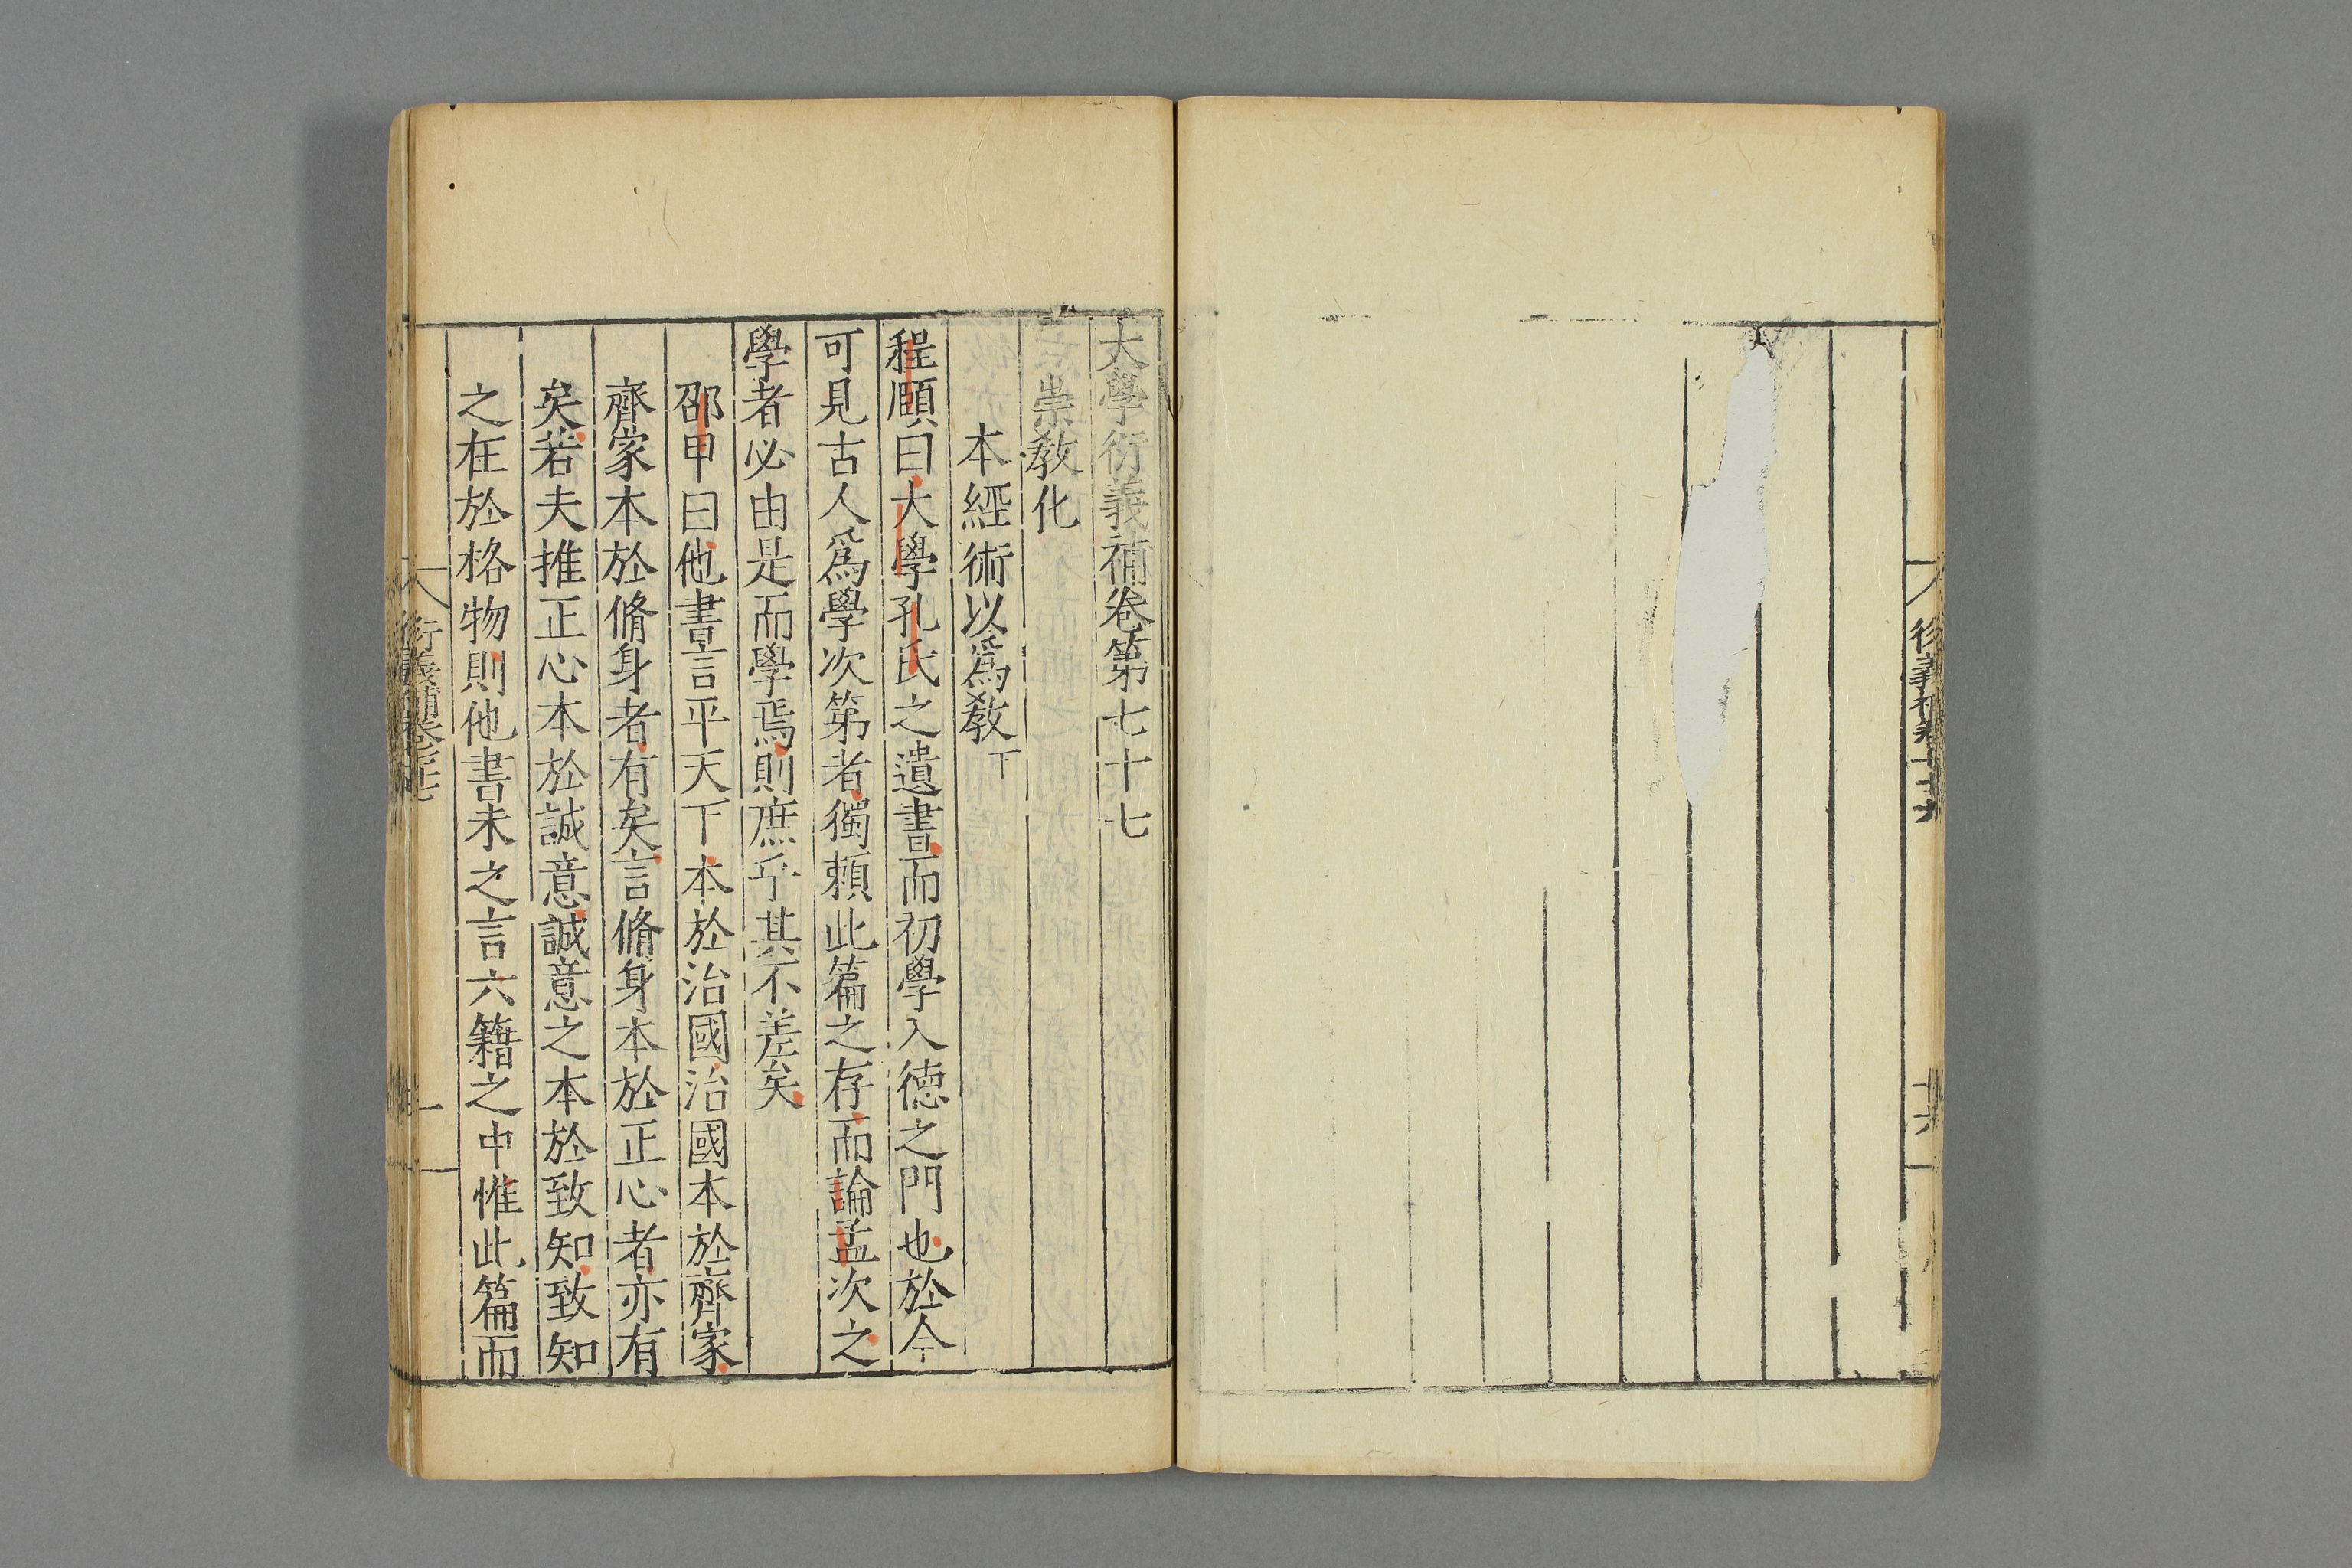 大學衍義補卷第七十七
崇教化
本經術以爲教下
程頤曰大學孔氏之遺書而初學入德之門也於今
可見古人爲學次第者獨賴此篇之存而論孟次之
學者必由是而學焉則庶乎其不差矣
邵甲曰他書言平天下本於治國治國本於齊家
齊家本於脩身者有矣言脩身本於正心者亦有
矣若夫推正心本於誠意誠意之本於致知致知
之在於格物則他書未之言六籍之中惟此篇而